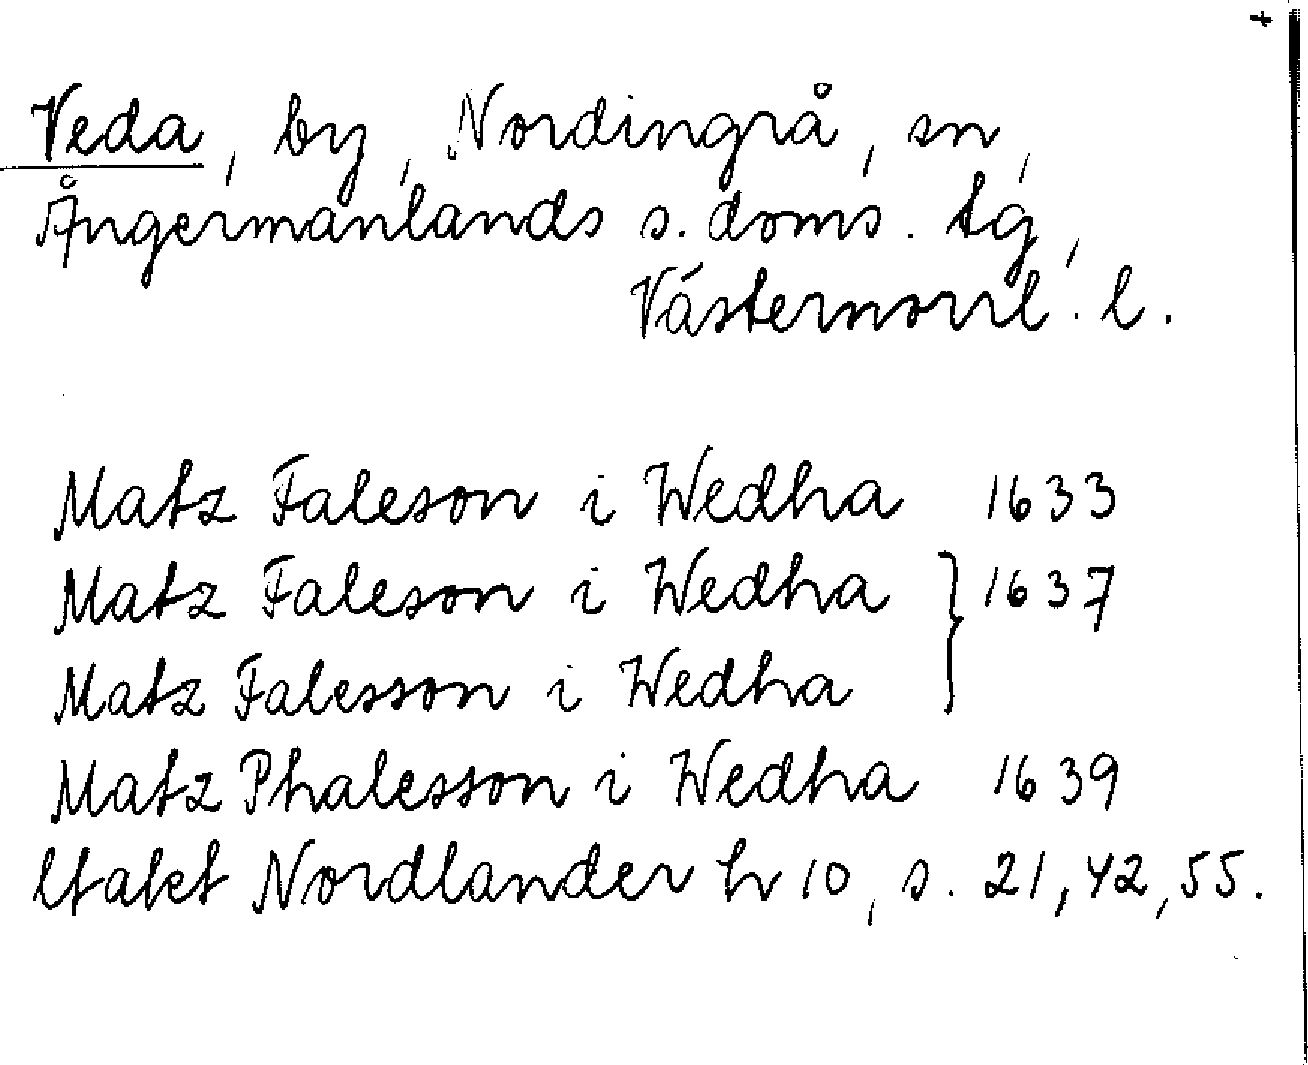 Veda, by, Nordingrå, sn,
Ångermanlands s. doms. tg,
Västernorrl. l.
Matz Faleson i Wedha 1633
Matz Faleson i Wedha } 1637
Matz Falesson i Wedha
Matz Phalesson i Wedha 1639
Utakt Nordlander h 10, s. 21, 42, 55.